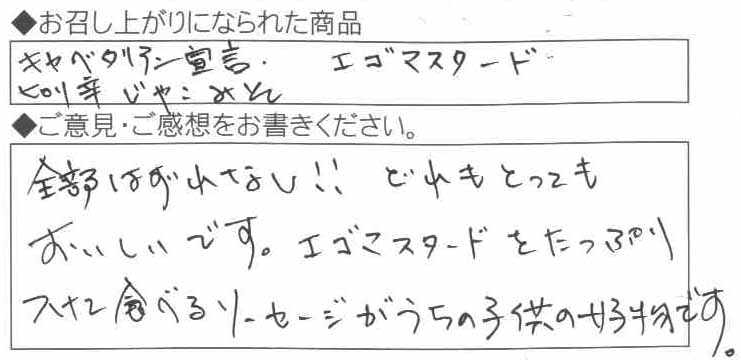 ◆お召し上がりになられた商品
キャベタリアン宣言. エゴマスタード
ピリ辛じゃこみそ
◆ご意見・ご感想をお書きください。
全部はずれなし!! どれもとっても
おいしいです。エゴマスタードをたっぷり
つけて食べるソーセージがうちの子供の好物です。